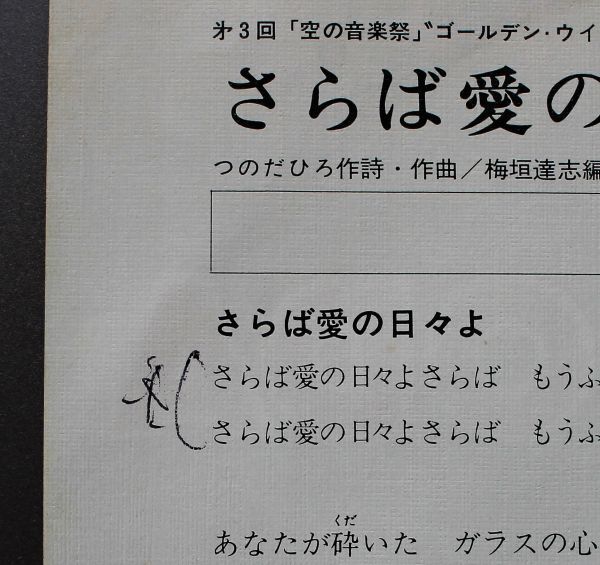 㐧3回「空の音楽祭」〝ゴールデン・ウイ
さらば愛の
つのだひろ作詩・作曲／梅垣達志編
さらば愛の日々よ
さらば愛の日々よさらば　もうふ
さらば愛の日々よさらば　もうふ
くだ
あなたが砕いた　ガラスの心